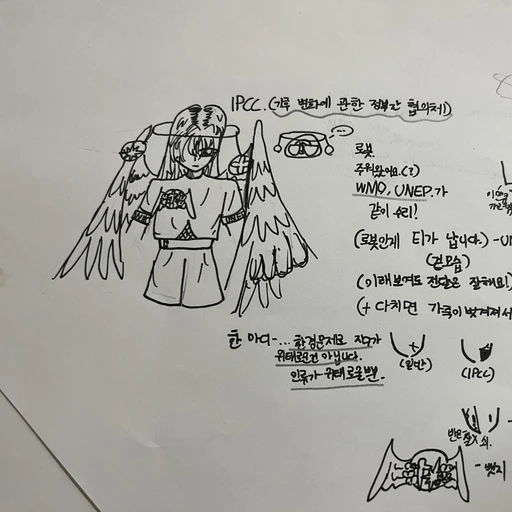 IPCC. (기후 변화에 관한 정부간 협의체)
로봇.
주워왔어요.(?)
WMO, UNEP.가
같이 수리!
(로봇인게 티가 납니다) - UN
(겉모습)
(이래보여도 전달은 잘해요!)
(+ 다치면 가죽이 벗겨져서
한 마디-... 환경문제로 지구가
위태로운건 아닙니다.
인류가 위태로울뿐.
(일반)
(IPCC)
반은 쇠.
- 뱃지